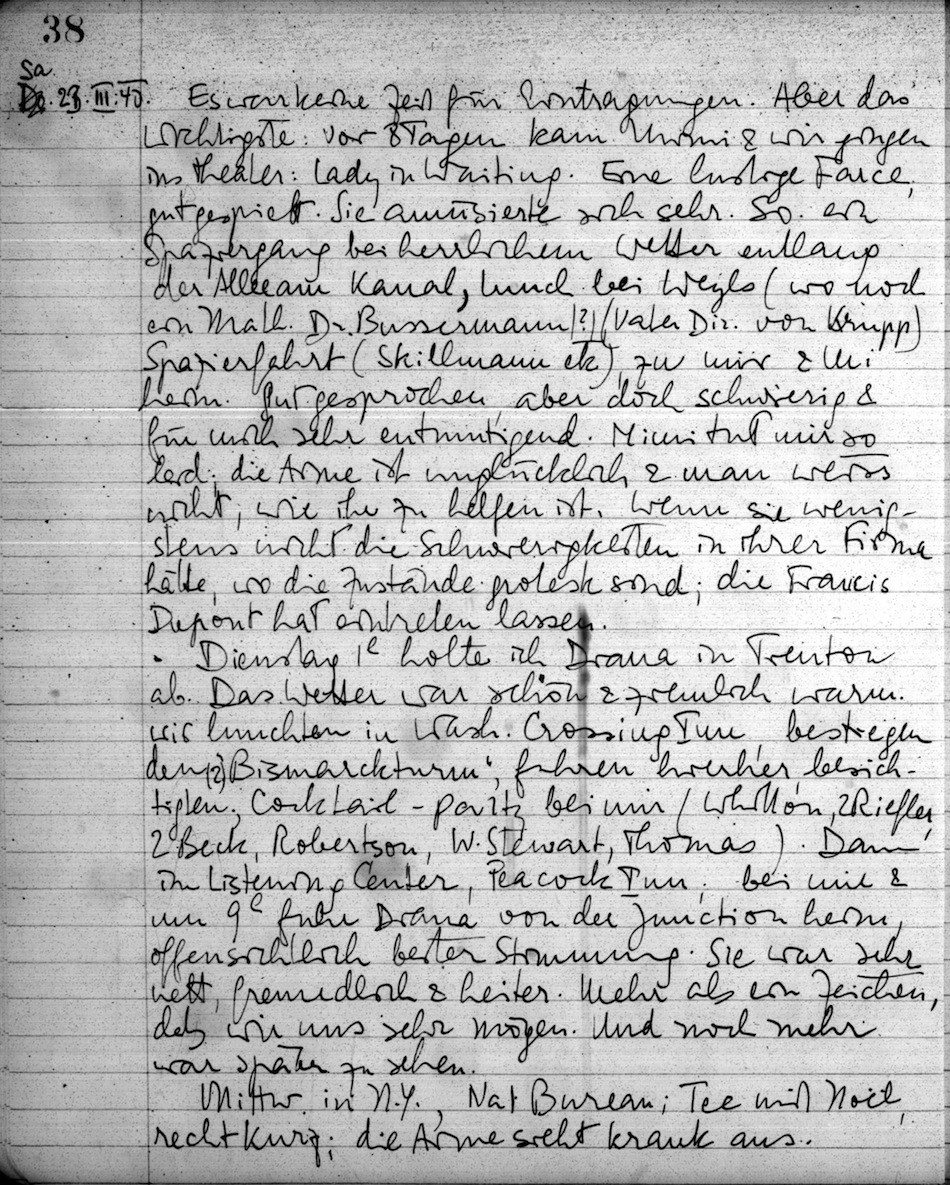 38
Sa
23.III.40. Es war keine Zeit für Eintragungen. Aber das
wichtigste: vor 8 Tagen kam Mimi & wir gingen
ins theater: Lady in Waiting. Eine lustige Farce,
gut gespielt. Sie amüsierte sich sehr. So. ein
Spaziergang bei herrlichem Wetter entlang
der Allee am Kanal, lunch bei Weyls (wo noch
ein Math. Dr. Bussermann (?) (Vater Dir. von Krupp)
Spazierfahrt (Skillmann etc), zu mir & Mi
heim. Gut gesprochen, aber doch schwierig &
für mich sehr entmutigend. Mimi tut mir so
leid; die Arme ist unglücklich & man weiss
nicht, wie ihr zu helfen ist. Wenn sie wenig-
stens nicht die Schwierigkeiten in ihrer Firma
hätte, wo die Zustände grotesk sind; die Francis
Dupont hat eintreten lassen.
. Dienstag 1h holte ich Drana in Trenton
ab. Das Wetter war schön & ziemlich warm.
wir lunchten in Wash. Crossing Inn, bestiegen
den (?) "Bismarckturm", fuhren hierher besich-
tigten; Cocktail-party bei mir (Whitton, 2 Riefler,
2 Beck, Robertson, W. Stewart, Thomas). Dann
im Listening Center, Peacock Inn, bei mir &
um 9h fuhr Drana von der Junction heim,
offensichtlich bester Stimmung. Sie war sehr
nett, freundlich & heiter. Mehr als ein Zeichen,
daß wir uns sehr mögen. Und noch mehr
war später zu sehen.
Mittw. in N.Y., Nat Bureau; Tee mit Noël,
recht kurz; die Arme sieht krank aus.